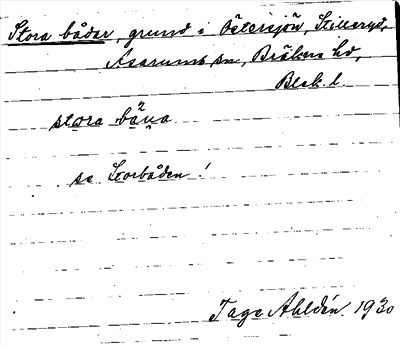 Stora bådar, grund i Östersjön, Stilleryd,
Asarums sn, Bräkne hd,
Blek. l.
stora bå²na
se Storbåden!
Tage Ahldén 1930